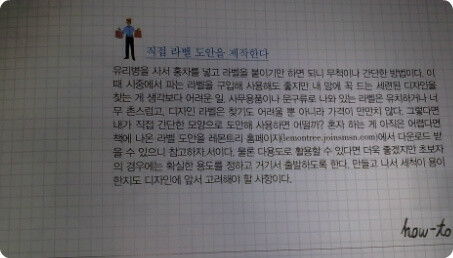 직접 라벨 도안을 제작한다
유리병을 사서 홍차를 넣고 라벨을 붙이기만 하면 되니 무척이나 간단한 방법이다. 이
때 시중에서 파는 라벨을 구입해 사용해도 좋지만 내 맘에 꼭 드는 세련된 디자인을
찾는 게 생각보다 어려운 일. 사무용품이나 문구류로 나와 있는 라벨은 유치하거나 너
무 촌스럽고, 디자인 라벨은 찾기도 어려울 뿐 아니라 가격이 만만치 않다. 그렇다면
내가 직접 간단한 모양으로 도안해 사용하면 어떨까? 혼자 하는 게 아직은 어렵다면
책에 나온 라벨 도안을 레몬트리 홈페이지(lemontree.joinsmsn.com)에서 다운로드 받
을 수 있으니 참고하자. 물론 다용도로 활용할 수 있다면 더욱 좋겠지만 초보자
의 경우에는 확실한 용도를 정하고 거기서 출발하도록 한다. 만들고 나서 세척이 용이
한지도 디자인에 앞서 고려해야 할 사항이다.
how-to